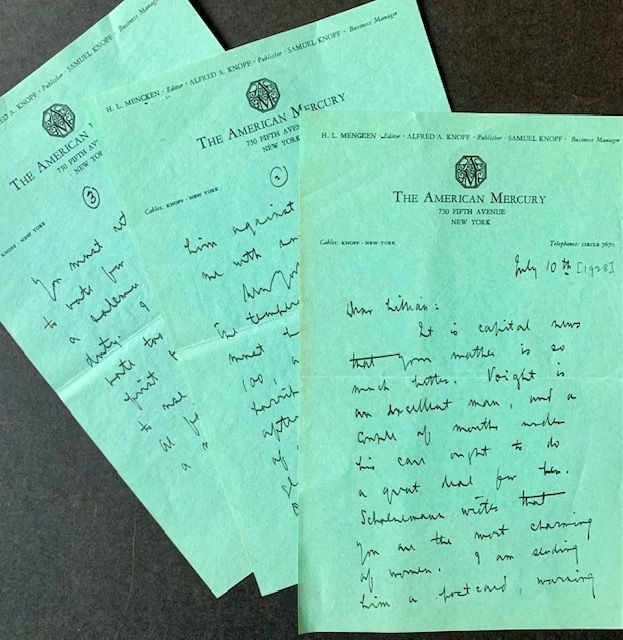 H. L. MENCKEN · Editor · ALFRED A. KNOPF · Publisher · SAMUEL KNOPF · Business Manager
AM
THE AMERICAN MERCURY
730 FIFTH AVENUE
NEW YORK
Cables: KNOPF · NEW YORK
Telephone: CIRCLE 7670
July 10th [1928]
Dear Lillian:
It is capital news
that your mother is so
much better. Voight is
an excellent man, and a
couple of months under
his care ought to do
a great deal for her.
Schoenemann writes that
you are the most charming
of women. I am sending
him a postcard warning
H. L. MENCKEN · Editor · ALFRED A. KNOPF · Publisher · SAMUEL KNOPF · Business Manager
AM
THE AMERICAN MERCURY
730 FIFTH AVENUE
NEW YORK
2
Cables: KNOPF · NEW YORK
him against
me with an
New York
The temper
must
100, a
horrib
after
of
A. KNOPF · Publisher · SAMUEL KNOPF · Business Manager
AM
THE AMERICAN M
730 FIFTH AVENUE
NEW YORK
3
KNOPF · NEW YORK
You must not
to vote for
a solemn
duty. I
vote too
first
to
Al for
a m